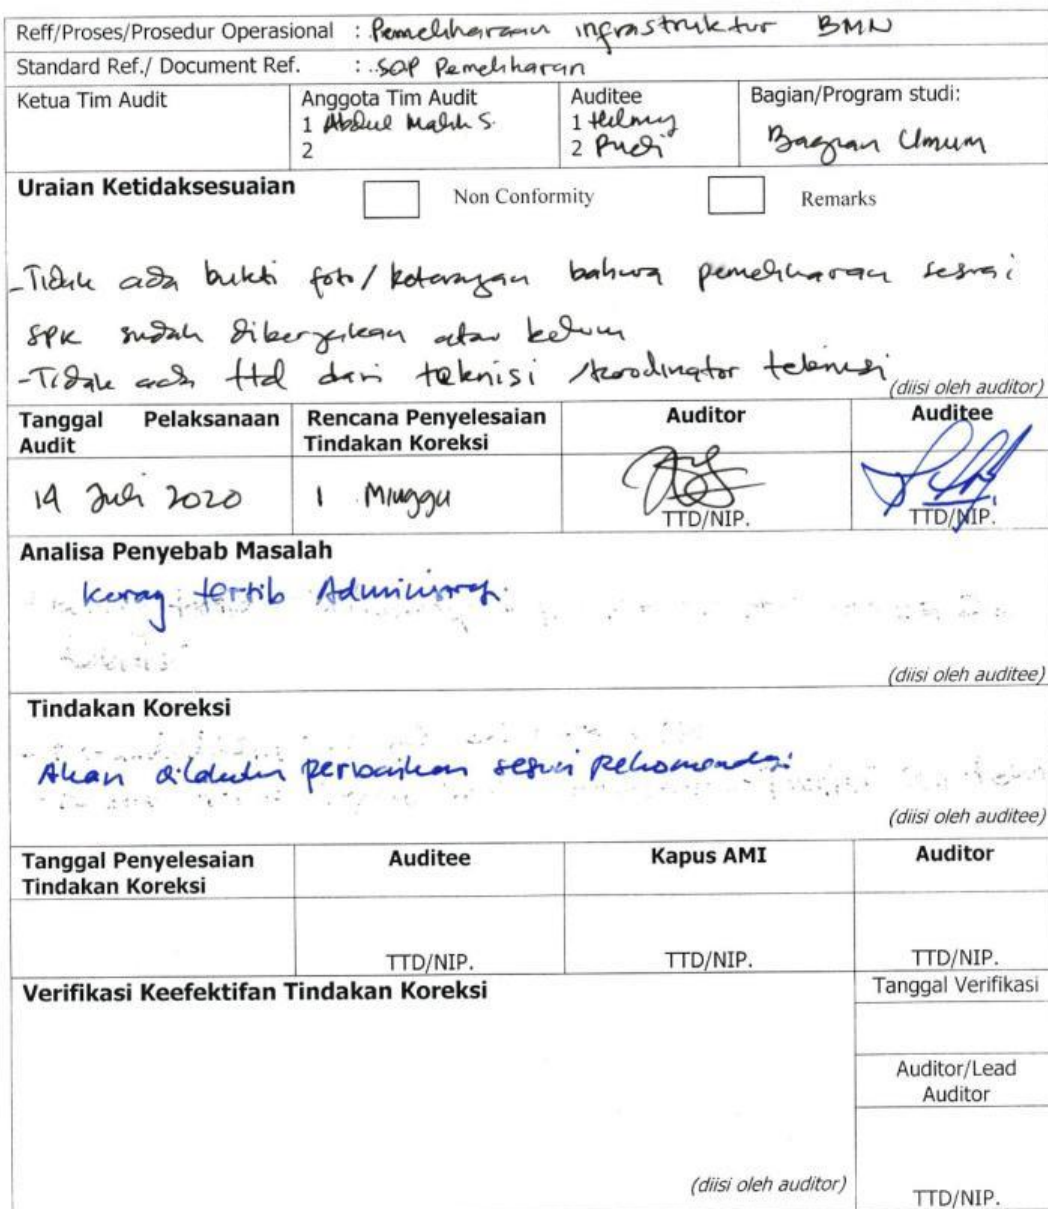 Reff/Proses/Prosedur Operasional : Pemeliharaan infrastruktur BMN
Standard Ref./ Document Ref. : SOP Pemeliharan
Ketua Tim Audit
Anggota Tim Audit
1 Abdul Malik S.
2
Auditee
1 Helmy
2 Pudi
Bagian/Program studi:
Bagian Umum
Uraian Ketidaksesuaian
Non Conformity
Remarks
-Tidak ada bukti foto/keterangan bahwa pemeliharan sesuai
SPK sudah dikerjakan atau belum
-Tidak ada ttd dari teknisi /koordinator teknisi
(diisi oleh auditor)
Tanggal Pelaksanaan Audit
Rencana Penyelesaian Tindakan Koreksi
Auditor
Auditee
14 Juli 2020
1 Minggu
TTD/NIP.
TTD/NIP.
Analisa Penyebab Masalah
kurang tertib Administrasi.
(diisi oleh auditee)
Tindakan Koreksi
Akan dilakukan perbaikan sesuai Rekomendasi
(diisi oleh auditee)
Tanggal Penyelesaian Tindakan Koreksi
Auditee
Kapus AMI
Auditor
TTD/NIP.
TTD/NIP.
TTD/NIP.
Verifikasi Keefektifan Tindakan Koreksi
Tanggal Verifikasi
Auditor/Lead
Auditor
(diisi oleh auditor)
TTD/NIP.